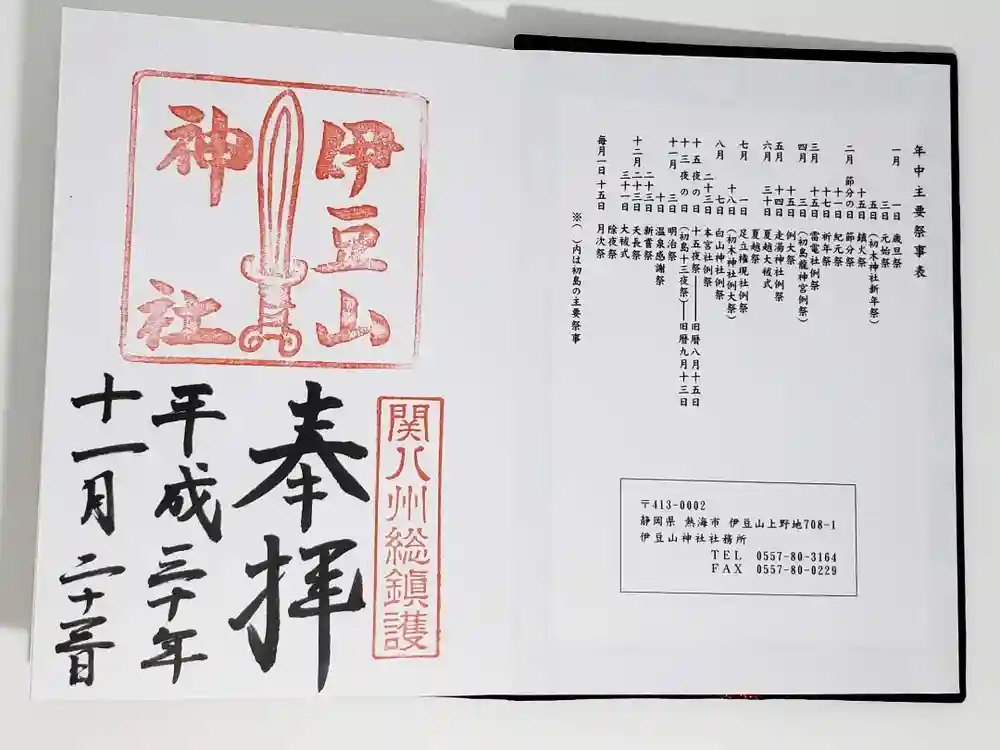 伊豆山
神社
関八州総鎮護
奉拝
平成三十年
十一月二十三日
年中主要祭事表
一月 一日 歳旦祭
三日 元始祭
五日 (初木神社新年祭)
十五日 鎮火祭
二月 節分の日 節分祭
十一日 紀元祭
十七日 祈年祭
三月 十五日 雷電社例祭
四月 三日 (初島龍神宮例祭)
十五日 例大祭
五月 十四日 走湯神社例祭
六月 三十日 夏越大祓式
夏越祭
七月 一日 足立権現社例祭
十八日 (初木神社例大祭)
八月 七日 白山神社例祭
二十三日 本宮社例祭
十五夜の日 十五夜祭――旧暦八月十五日
十三夜の日 (初島十三夜祭)――旧暦九月十三日
十一月 三日 明治祭
十日 温泉感謝祭
二十三日 新嘗祭
十二月 二十三日 天長祭
三十一日 大祓式
除夜祭
毎月一日 十五日 月次祭
※( )内は初島の主要祭事
〒413-0002
静岡県 熱海市 伊豆山上野地708-1
伊豆山神社社務所
TEL 0557-80-3164
FAX 0557-80-0229